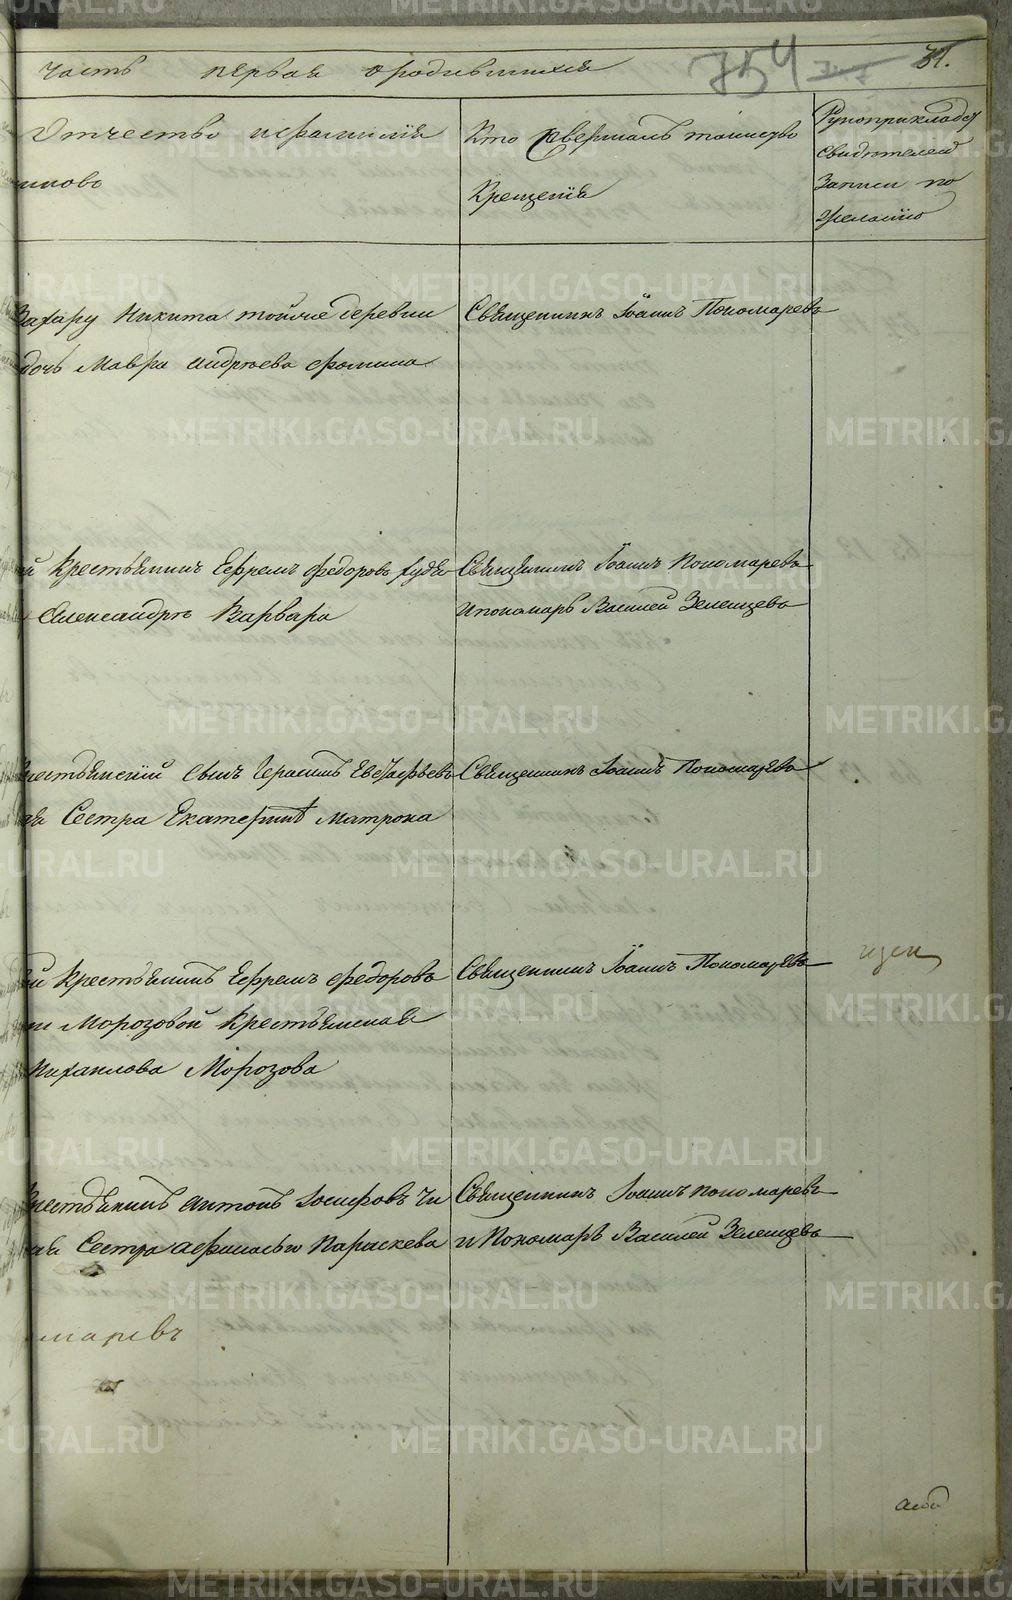 часть первая о родившихся
754
Отчество и фамилия
Кто совершалъ таинство
Крещенія
Рукоприкладст
свидетелей
Записи по
желанію
Захару Никита тойже деревни
дочь Мавра Андреева Фомина
Священникъ Іоаннъ Пономаревъ
Крестьянинъ Ефремъ Федоровъ
Александръ Варвара
Священникъ Іоаннъ Пономаревъ
и пономарь Василей Зеленцевъ
сынъ Герасимъ Евстафьевъ
Сестра Екатерина Матрона
Священникъ Іоаннъ Пономаревъ
Крестьянинъ Ефремъ Федоровъ
Морозовой Крестьянская
Михаилова Морозова
Священникъ Іоаннъ Пономаревъ
Антонъ Іосифовъ
Сестра Параскева
Священникъ Іоаннъ Пономаревъ
и Пономарь Василей Зеленцевъ
маревъ
METRIKI.GASO-URAL.RU